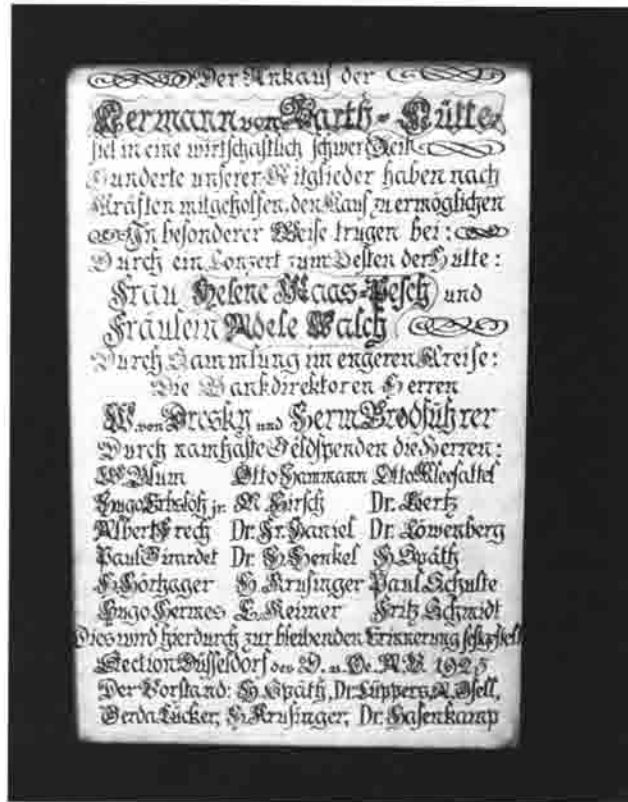 Der Ankauf der
Hermann von Barth-Hütte
fiel in eine wirtschaftlich schwere Zeit
Hunderte unserer Mitglieder haben nach
Kräften mitgeholfen, den Kauf zu ermöglichen
In besonderer Weise trugen bei:
Durch ein Konzert zum Besten der Hütte:
Frau Helene Maas-Pesch und
Fräulein Adele Walch
Durch Sammlung im engeren Kreise:
Die Bankdirektoren Herren
W. von Dresky und Herm Brodführer
Durch namhafte Geldspenden die Herren:
W Blum Otto Hammann Otto Kleesattel
Hugo Erbslöh jr. M. Hirsch Dr.
Albert Frech Dr. Fr. Haniel Dr. Löwenberg
Paul Girardet Dr. H. Henkel H. Späth
F. Hörhager H. Krusinger Paul Schulte
Hugo Hermes E. Reimer Fritz Schmidt
Dies wird hierdurch zur bleibenden Erinnerung festgestellt
Section Düsseldorf des D. u. Oe. A. V. 1925
Der Vorstand: H. Späth, Dr. Lüppers,
Gerda Lücker, H. Krusinger, Dr. Hasenkamp